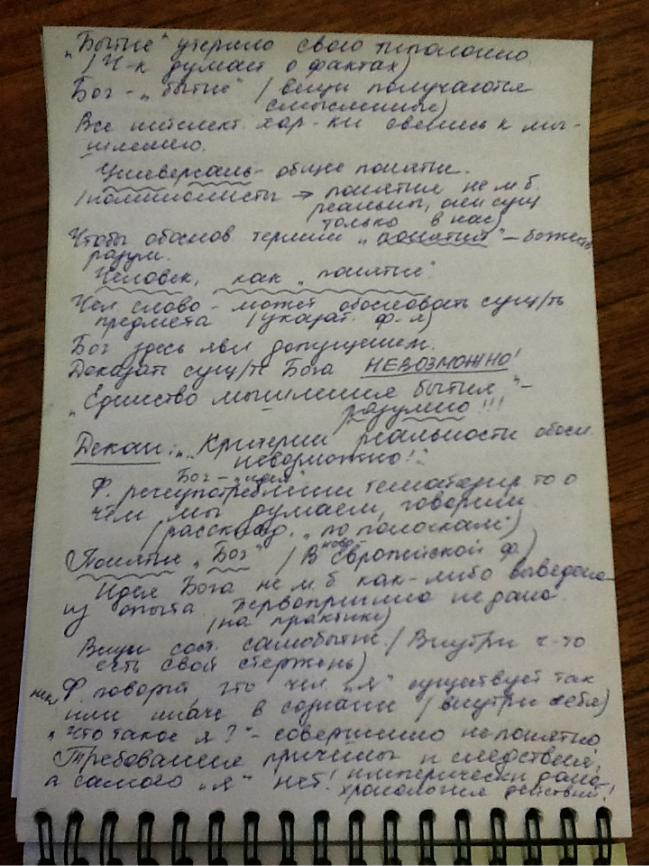 „Бытие" утеряло свою типологию.
/ Ч-к думает о фактах)
Бог - „бытие" / вещи получаются
смысленные)
Все интеллект. хар-ки свелись к мы-
шлению.
Универсаль - общее понятие.
/номиналисты → понятия не м.б.
реальны, они сущ
только в нас)
Чтобы обоснов. термин „понятия" – божеств
разум.
Человек, как „понятие".
Чел. слово - может обосновать сущ/ть
предмета /указат. ф-я)
Бог здесь явл допущением.
Доказать сущ/е Бога НЕВОЗМОЖНО!
„Единство мышления бытия" -
разумно!!!
Декан: „Критерии реальности обосн.
невозможно!"
Бог - „идея"
Ф. речеупотреблении тематизир то о
чём мы думаем, говорим.
/рассужд. „по полочкам")
Понятие „Бог" / В ново-Европейской ф.)
Идея Бога не м.б. как-либо выведена
из опыта. Первопричина не дана.
/на практике)
Вещи сост. самобытие. / Внутри ч-то
есть свой стержень)
Ф. говорит что чел. „я" существует так
или иначе в сознании / внутри себя)
„что такое я?" - совершенно непонятно
Требование причины и следствия,
а самого „я" нет! империчски дана
хронология действий!